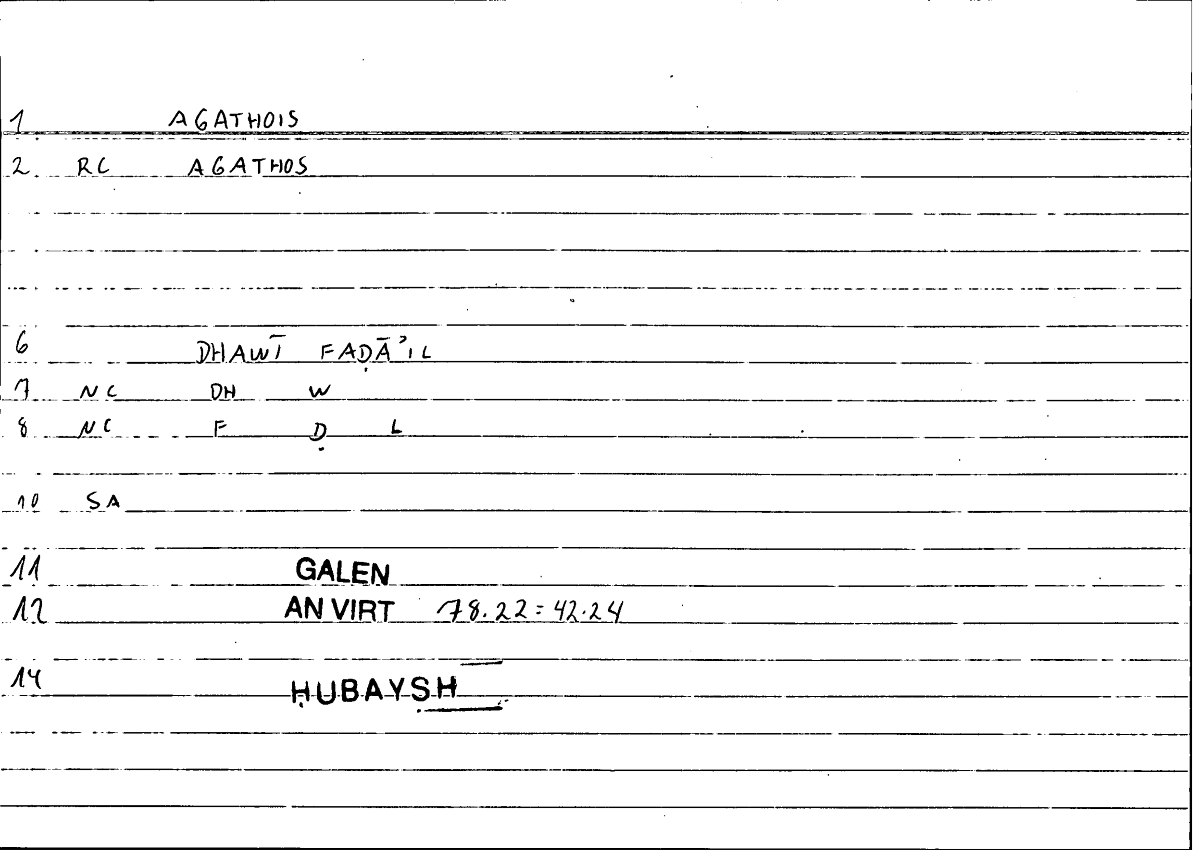 1 AGATHOIS
2 RC AGATHOS
6 DHAWĪ FAḌĀʾIL
7 NC DH W
8 NC F Ḍ L
10 SA
11 GALEN
12 AN VIRT 78.22 = 42.24
14 ḤUBAYSH